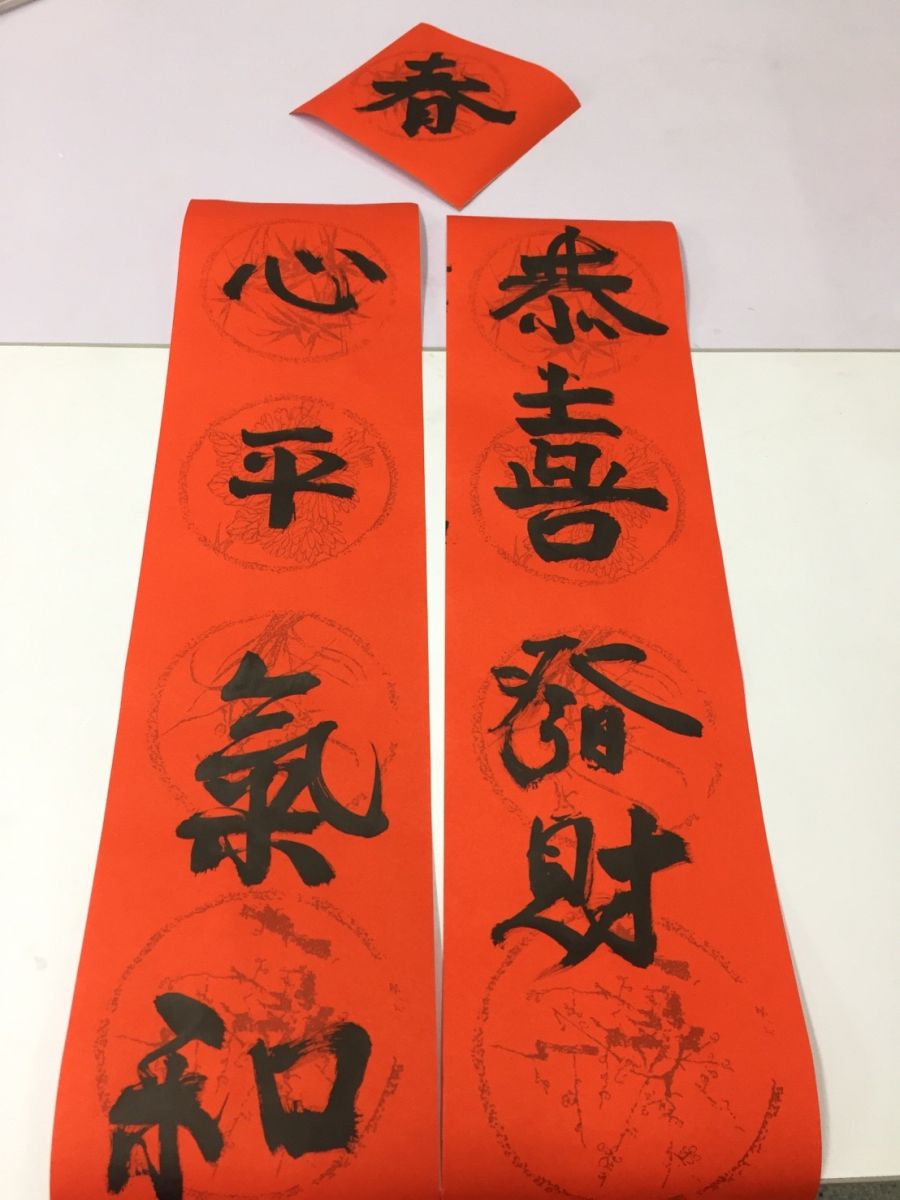 春
恭喜發財
心平氣和